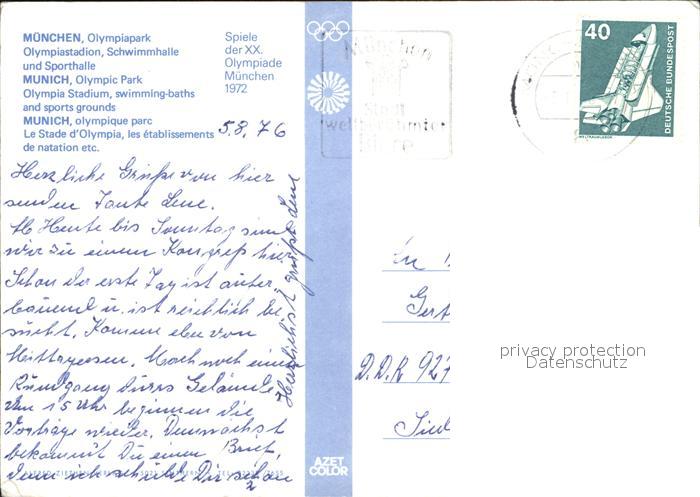 MÜNCHEN, Olympiapark
Olympiastadion, Schwimmhalle
und Sporthalle
MUNICH, Olympic Park
Olympia Stadium, swimming-baths
and sports grounds
MUNICH, olympique parc
Le Stade d'Olympia, les établissements
de natation etc.
Spiele
der XX.
Olympiade
München
1972
München
Stadt
weltberühmter
Biere
40
DEUTSCHE BUNDESPOST
WELTRAUMLABOR
5.8.76
Herzliche Grüße von hier
senden Tante Lene.
Ab Heute bis Sonntag sind
wir zu einem Kongreß hier.
Schon der erste Tag ist aufer-
bauend u. ist reichlich be-
sucht. Komme eben von
Mittagessen. Mach noch einen
Rundgang durchs Gelände
Um 15 Uhr beginnen die
Vorträge wieder. Demnächst
bekommst Du einen Brief,
denn ich schulde Dir schon
2
Herzlichst grüßt Lene
An
Gert
D.D.R 921
Sied
privacy protection
Datenschutz
AZET
COLOR